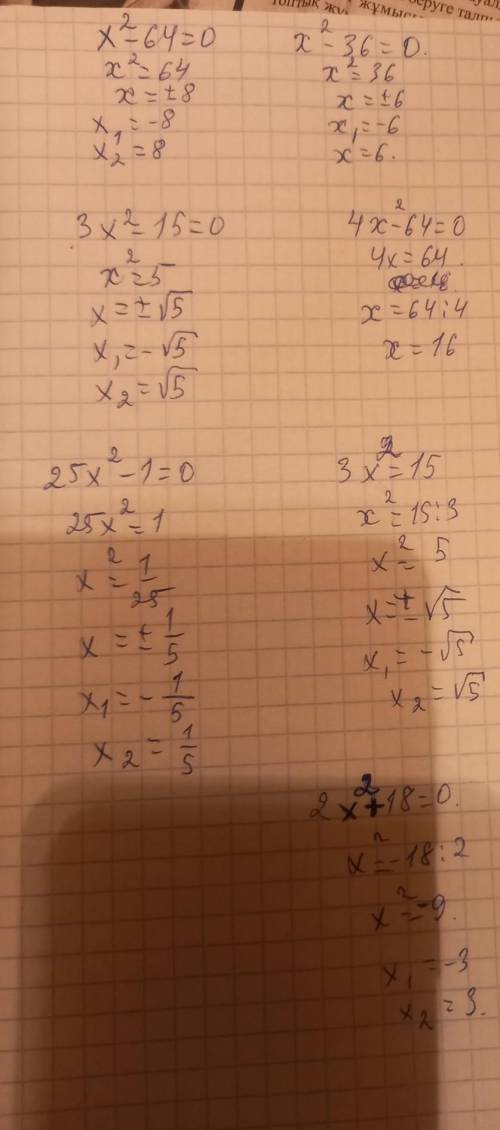 топтық
жұмысы
беруге
x² - 64 = 0
x² = 64
x = ± 8
x₁ = -8
x₂ = 8
x² - 36 = 0.
x² = 36
x = ±6
x₁ = -6
x = 6.
3x² - 15 = 0
x² = 5
x = ± √5
x₁ = - √5
x₂ = √5
4x² - 64 = 0
4x = 64.
x = 64 : 4
x = 16
25x² - 1 = 0
25x² = 1
x² = 1/25
x = ± 1/5
x₁ = - 1/5
x₂ = 1/5
3x² = 15
x² = 15 : 3
x² = 5
x = ± √5
x₁ = - √5
x₂ = √5
2x² + 18 = 0.
x² = -18 : 2
x² = -9.
x₁ = -3
x₂ = 3.